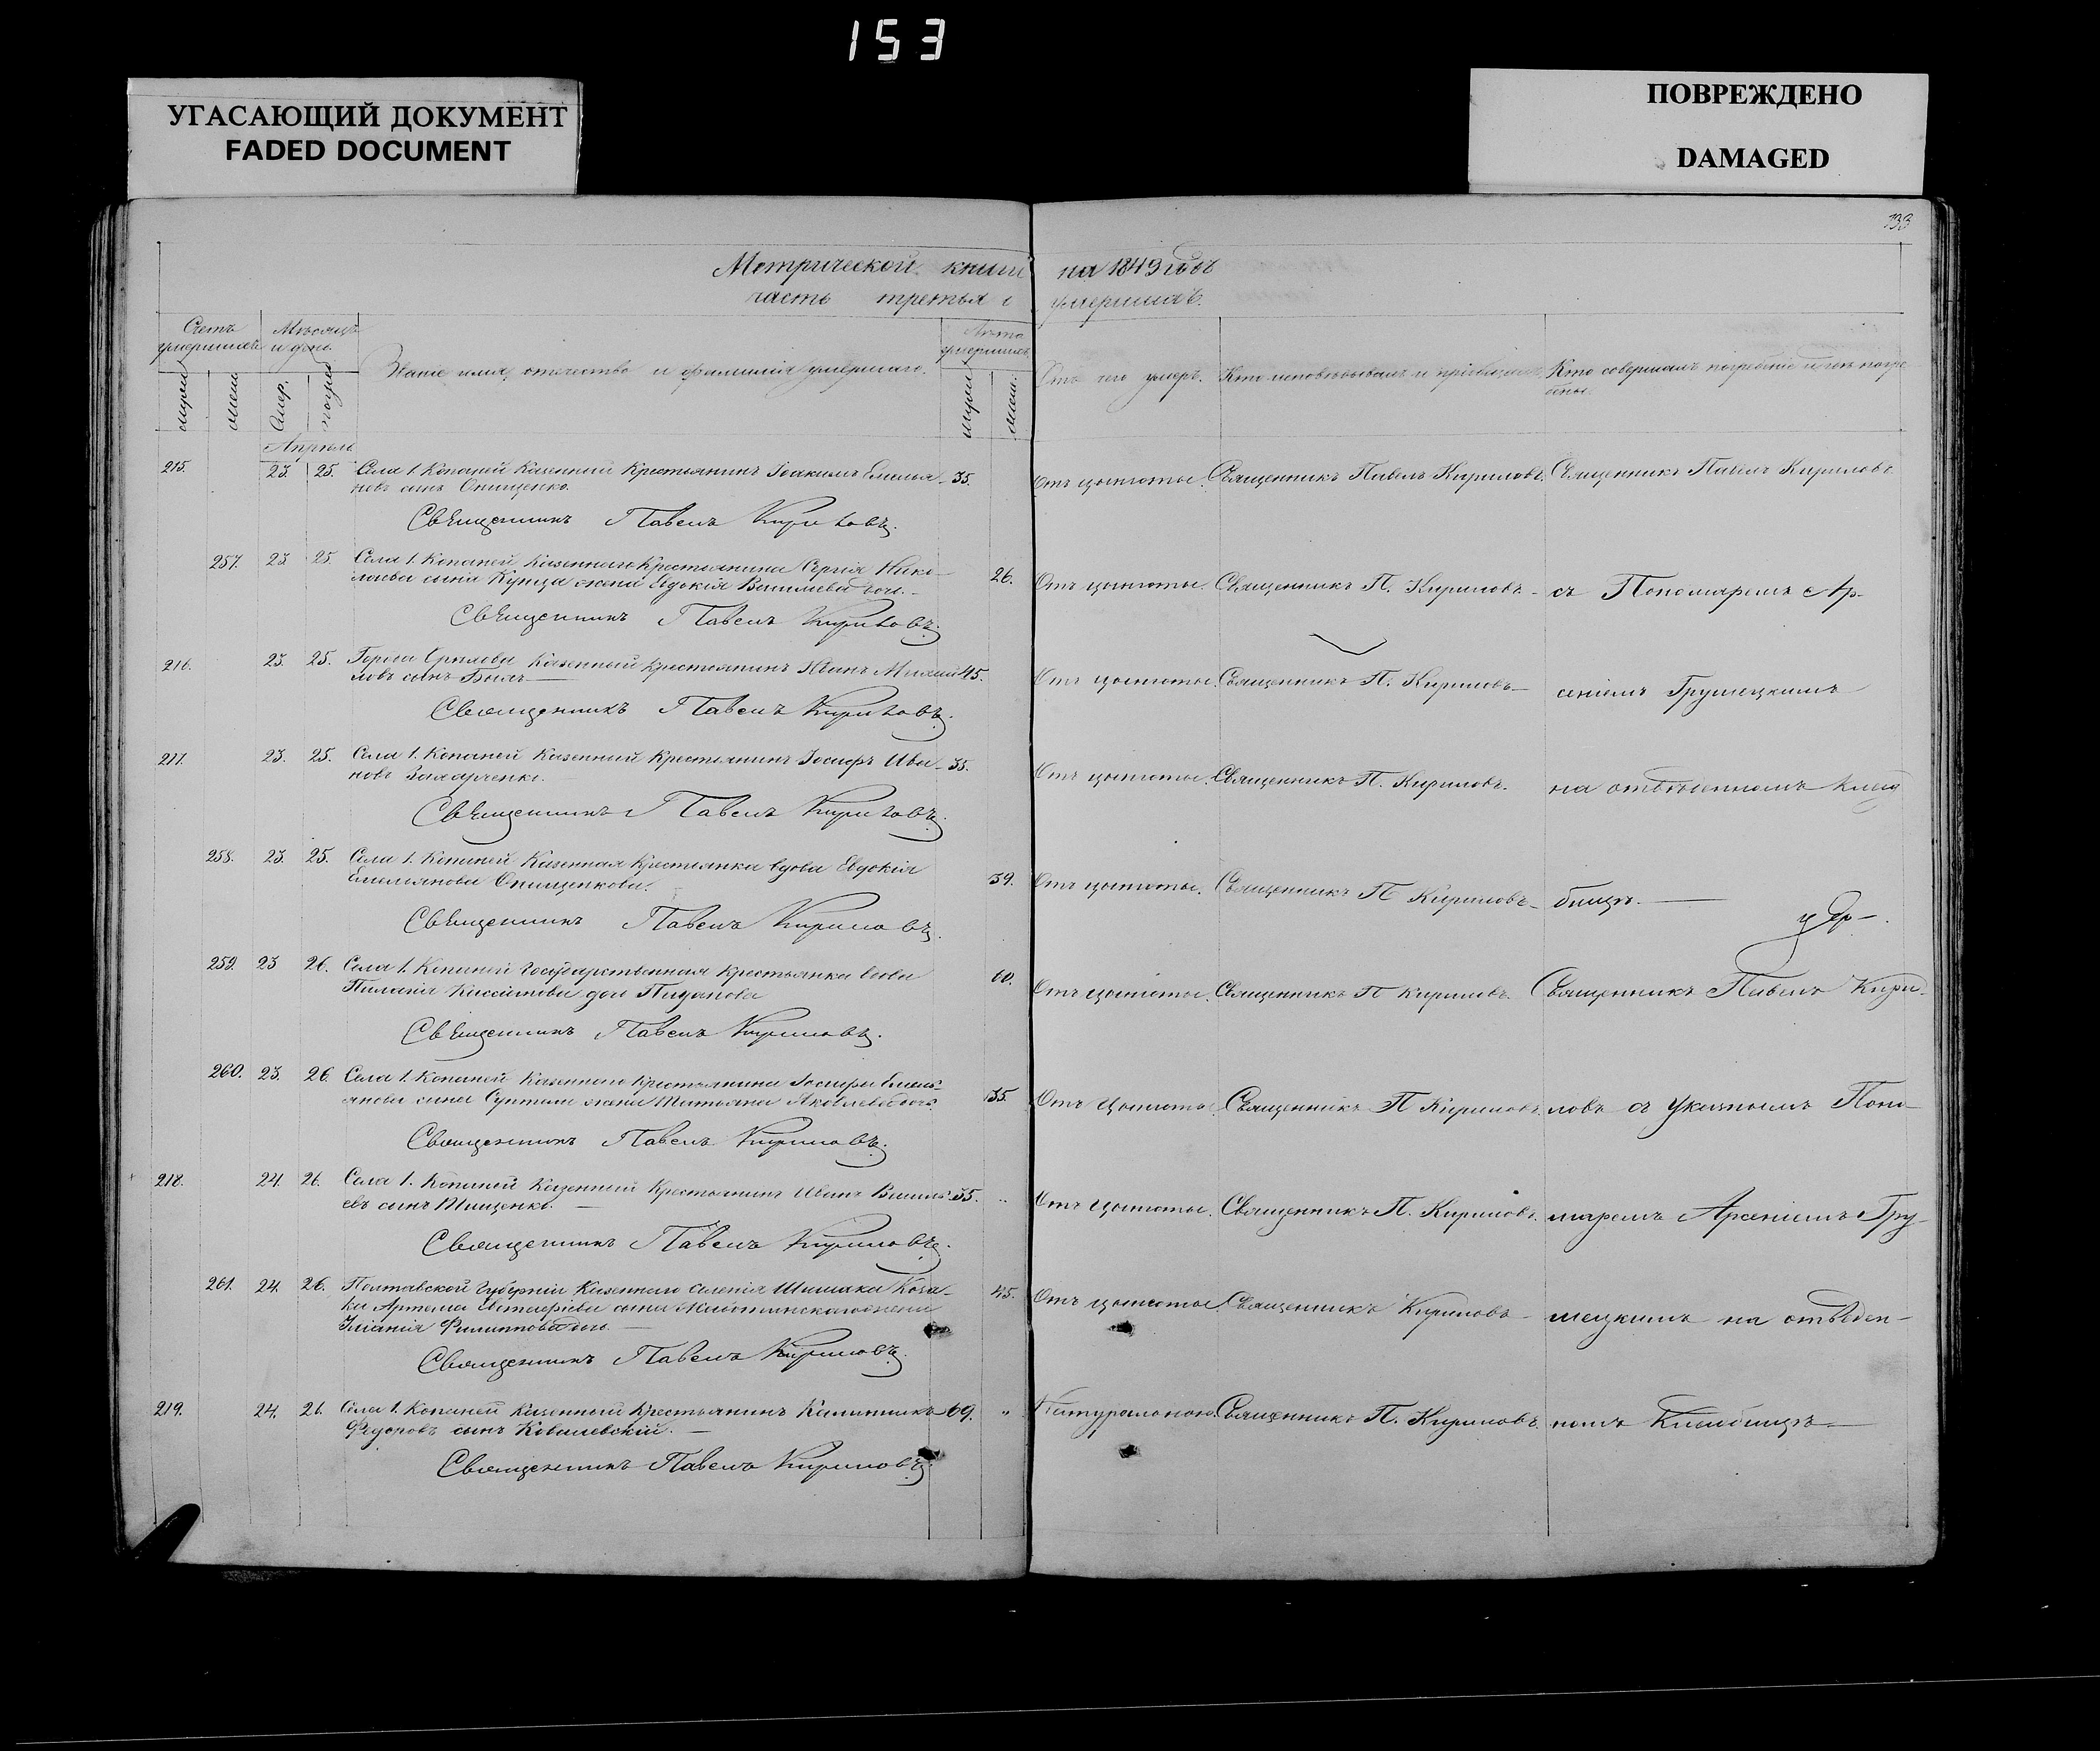 153
УГАСАЮЩИЙ ДОКУМЕНТ
FADED DOCUMENT
ПОВРЕЖДЕНО
DAMAGED
133
Метрической книги на 1849 годъ
часть третья о умершихъ.
Счетъ умершихъ
Мѣсяцъ и день.
Званіе имя, отечество и фамилія умершаго.
Лѣта умершихъ
Отъ чего умеръ.
Кто исповѣдывалъ и пріобщалъ
Кто совершалъ погребеніе и гдѣ погребены.
Апрѣль
215. 23. 25. Села 1. Копаней Казенный Крестьянинъ Іоакимъ Емелья- 35. Отъ цынготы. Священникъ Павелъ Кириловъ. Священникъ Павелъ Кириловъ
новъ сынъ Онищенко.
Священникъ Павелъ Кириловъ.
257. 23 25. Села 1. Копаней Казеннаго Крестьянина Сергія Нико- 26. Отъ цынготы. Священникъ П. Кириловъ - съ Пономаремъ Ар-
лаева сына Купца жена Евдокія Васильева доч.
Священникъ Павелъ Кириловъ.
216. 23. 25. Города Орѣхова Казенный Крестьянинъ Иванъ 45. Отъ цынготы. Священникъ П. Кириловъ - сеніемъ Грушецкимъ
ловъ сынъ
Священникъ Павелъ Кириловъ.
217. 23. 25. Села 1. Копаней Казенный Крестьянинъ Іосифъ Ива- 35. Отъ цынготы. Священникъ П. Кириловъ. на отведенномъ Клад
новъ
Священникъ Павелъ Кириловъ.
258. 23. 25. Села 1. Копаней Казенная Крестьянка вдова Евдокія 39. Отъ цынготы. Священникъ П Кириловъ - бищѣ.
Емельянова Онищенкова.
Священникъ Павелъ Кириловъ.
259. 23 26. Села 1. Копаней Государственная Крестьянка вдова 60. Отъ цынготы. Священникъ П Кириловъ. Священникъ Павелъ Кири-
Священникъ Павелъ Кириловъ.
260. 23. 26. Села 1. Копаней Казеннаго Крестьянина Іосифа Емель- 35. Отъ Цынготы. Священникъ П Кириловъ. ловъ съ Указнымъ Поно-
янова сына жена Татьяна Яковлева доч.
Священникъ Павелъ Кириловъ.
218. 24. 26. Села 1. Копаней Казенный Крестьянинъ Иванъ Василь- 35. Отъ Цынготы. Священникъ П. Кириловъ. маремъ Арсеніемъ Гру-
евъ сынъ Тищенко.
Священникъ Павелъ Кириловъ.
261. 24. 26. Полтавской Губерніи Казеннаго селенія Шишака Коза- 45. Отъ цынготы. Священникъ Кириловъ - шецкимъ на отведен-
ка Артема сына жена
Филиппова доч.
Священникъ Павелъ Кириловъ.
219. 24. 26. Села 1. Копаней Казенный Крестьянинъ Калинникъ 69. " Натурально. Священникъ П. Кириловъ. номъ Кладбищѣ
Федоровъ сынъ Ковалевскій.
Священникъ Павелъ Кириловъ.